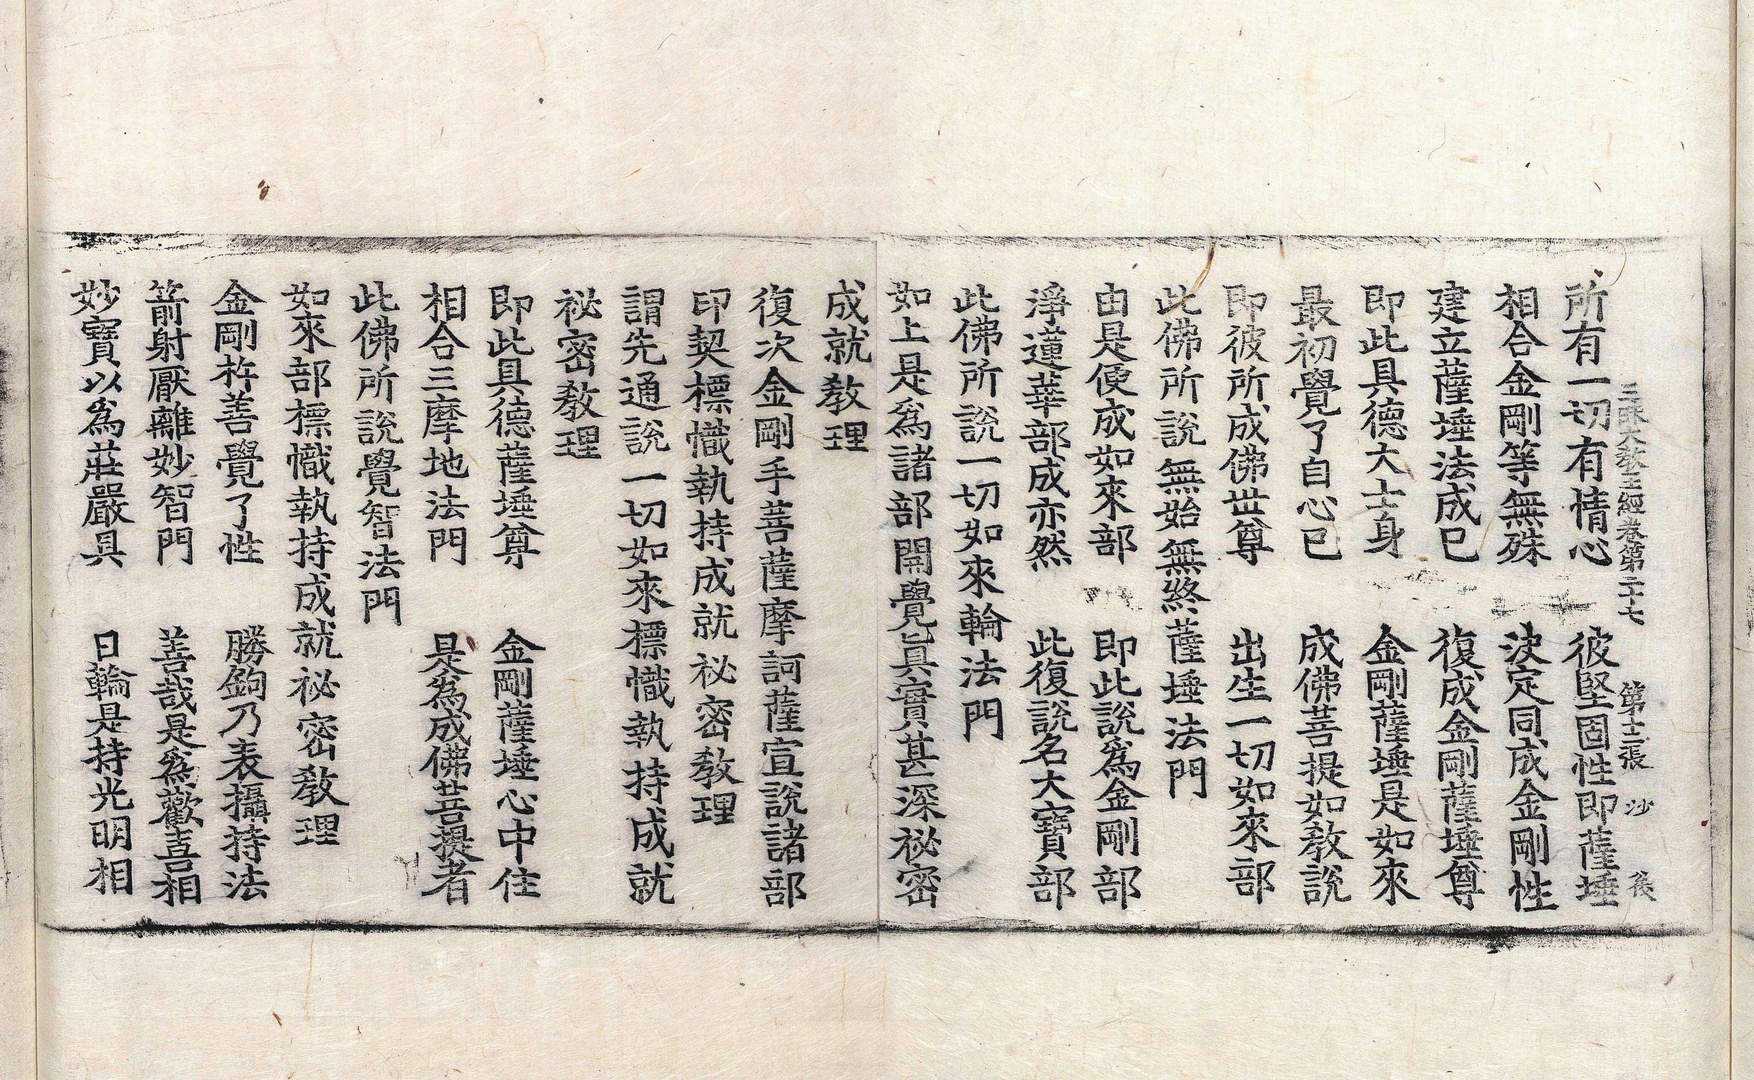 所有一切有情心　彼堅固性即薩埵
三昧大教王經卷第二十七　第十二張　沙
相合金剛等無殊　決定同成金剛性
建立薩埵法成已　復成金剛薩埵尊
即此具德大士身　金剛薩埵是如來
最初覺了自心已　成佛菩提如教說
即彼所成佛世尊　出生一切如來部
此佛所說無始無終薩埵法門
由是便成如來部　即此說爲金剛部
淨蓮華部成亦然　此復說名大寶部
此佛所說一切如來輪法門
如上是爲諸部開覺眞實甚深祕密
成就教理
復次金剛手菩薩摩訶薩宣說諸部
印契標幟執持成就祕密教理
謂先通說一切如來標幟執持成就
祕密教理
即此具德薩埵尊　金剛薩埵心中住
相合三摩地法門　是爲成佛菩提者
此佛所說覺智法門
如來部標幟執持成就祕密教理
金剛杵善覺了性　勝鉤乃表攝持法
箭射厭離妙智門　善哉是爲歡喜相
妙寶以爲莊嚴具　日輪是持光明相